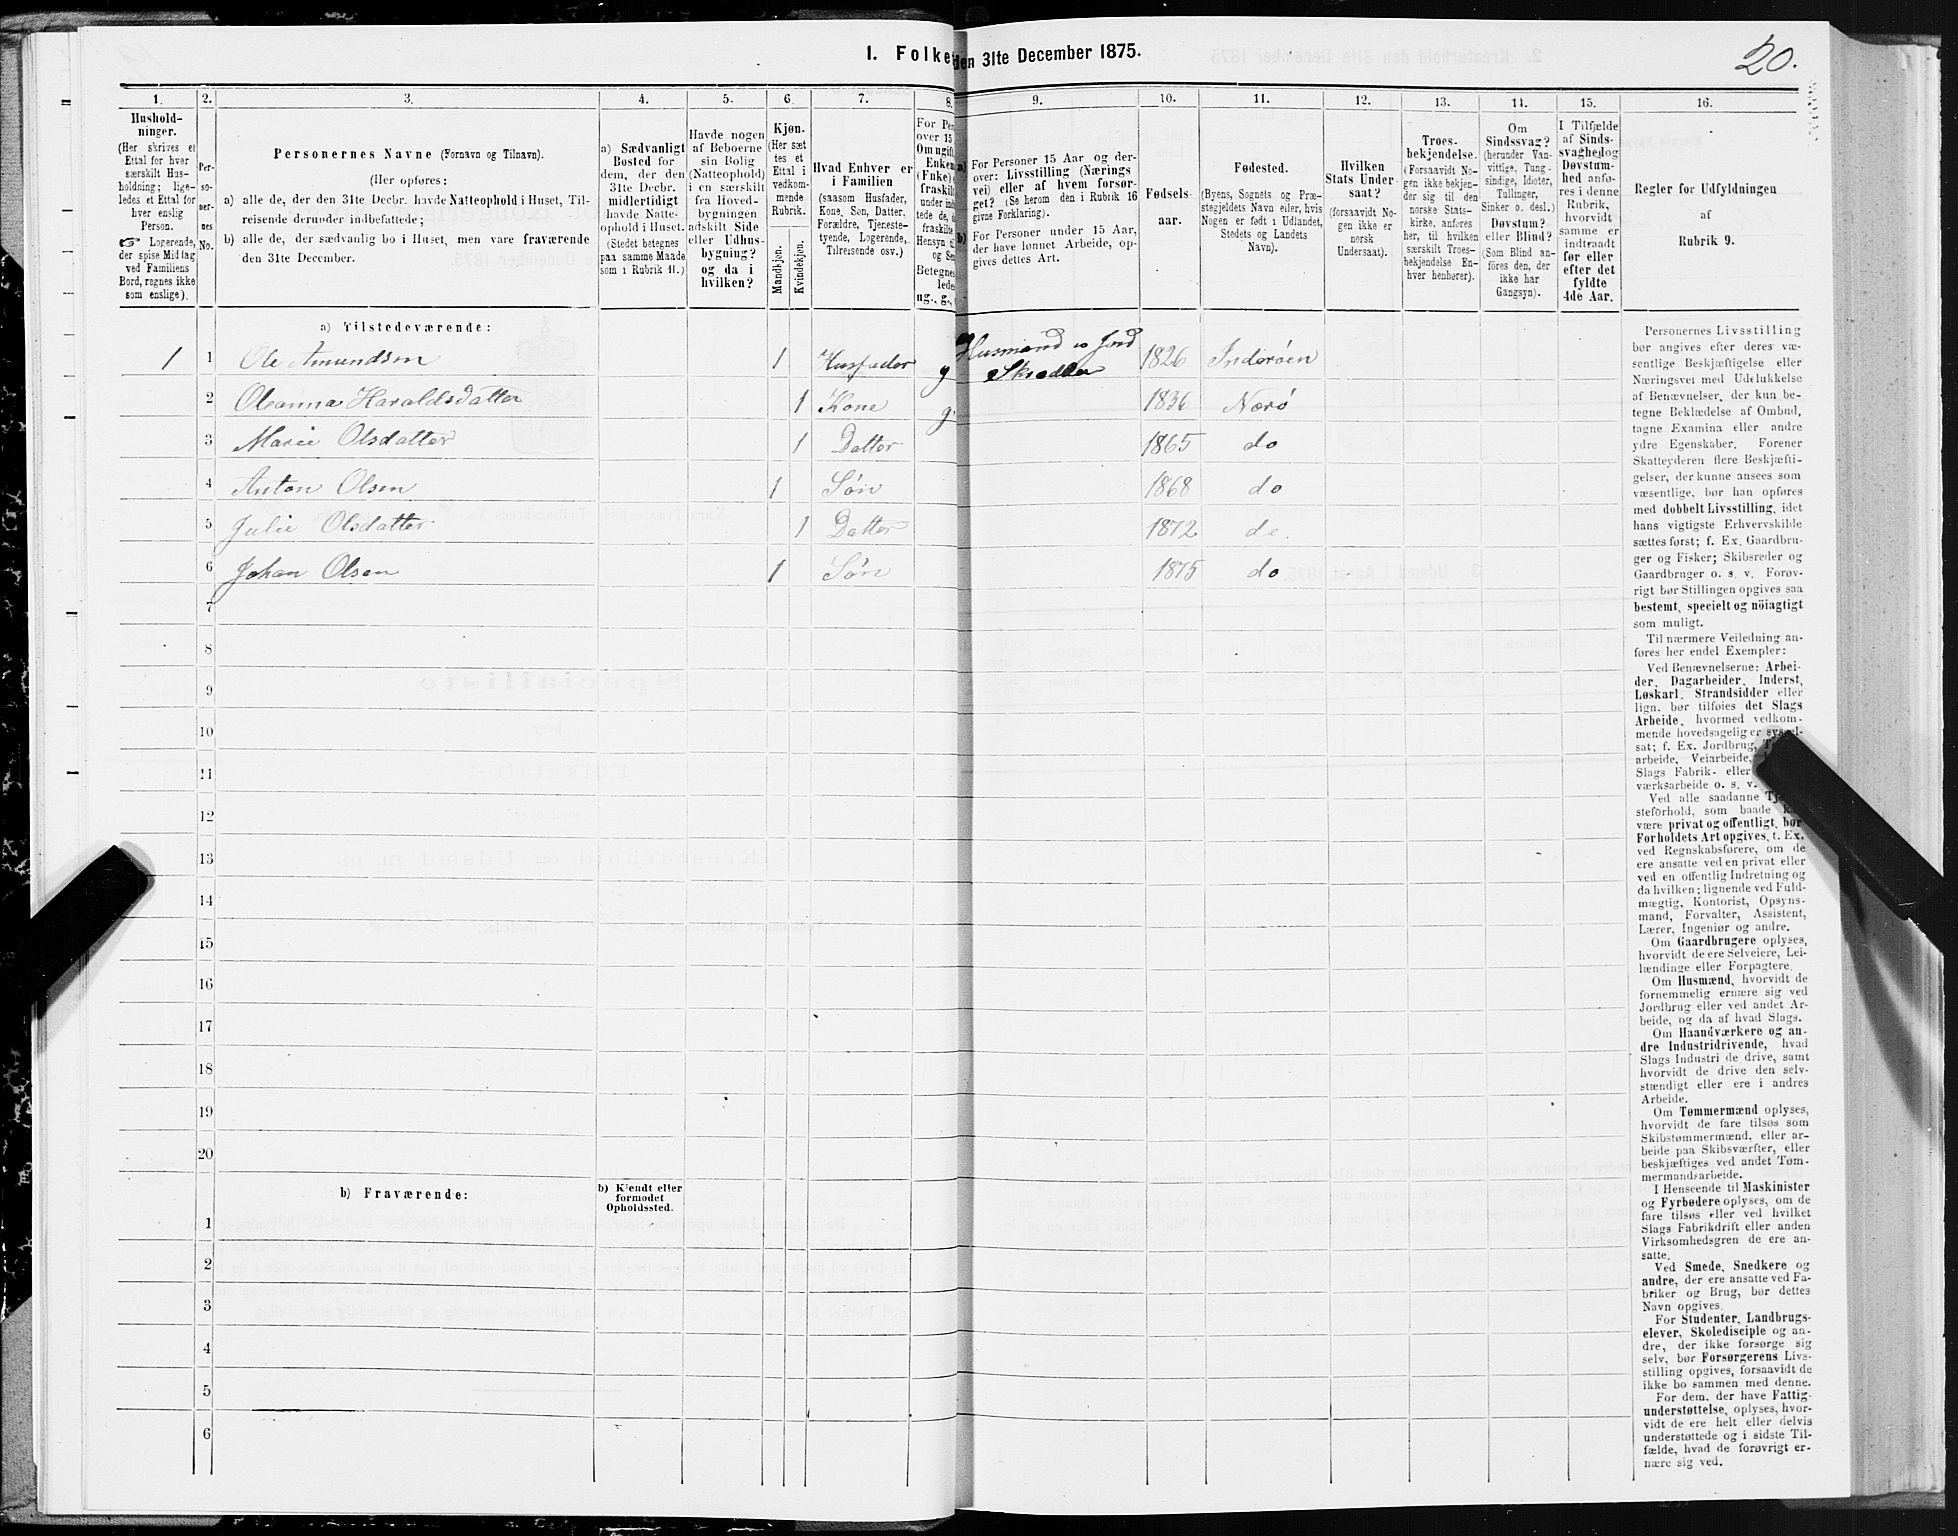 1. Folke den 31te December 1875.
20.
1. 2. 3. 4. 5. 6. 7. 8. 9. 10. 11. 12. 13. 14. 15. 16.
Hushold-
ninger.
(Her skrives et
Ettal for hver
særskilt Hus-
holdning; lige-
ledes et Ettal for
hver enslig
Person.
☞ Logerende,
der spise Middag
ved Familiens
Bord, regnes ikke
som enslige).
Per-
so-
ner-
nes
No.
Personernes Navne (Fornavn og Tilnavn).
(Her opføres:
a) alle de, der den 31te Decbr. havde Natteophold i Huset, Til-
reisende derunder indbefattede;
b) alle de, der sædvanlig bo i Huset, men vare fraværende
den 31te December.
a) Sædvanligt
Bosted for
dem, der den
31te Decbr.
midlertidigt
havde Natte-
ophold i Huset.
(Stedet betegnes
paa samme Maade
som i Rubrik 11.)
Havde nogen
af Beboerne
sin Bolig
(Natteophold)
i en særskilt
fra Hoved-
bygningen
adskilt Side
eller Udhus-
bygning?
og da i
hvilken?
Kjøn.
(Her sæt
tes et
Ettal i
vedkom-
mende
Rubrik.
Mandkjøn.
Kvindekjøn.
Hvad Enhver er
i Familien
(saasom Husfader,
Kone, Søn, Datter,
Forældre, Tjeneste-
tyende, Logerende,
Tilreisende osv.)
For Per
over 15
Om ugift
Enken
(Fnke)
fraskilt
under ind
tede de,
fraskilte
Hensyn ti
og Se
Betegne
lede
ug., g.,
a)
For Personer 15 Aar og der-
over: Livsstilling (Nærings
vei) eller af hvem forsør-
get? (Se herom den i Rubrik 16
givne Forklaring).
b)
For Personer under 15 Aar,
der have lønnet Arbeide, op-
gives dettes Art.
Fødsels-
aar.
Fødested.
(Byens, Sognets og Præ-
stegjeldets Navn eller, hvis
Nogen er født i Udlandet,
Stedets og Landets
Navn).
Hvilken
Stats Under-
saat?
(forsaavidt No-
gen ikke er
norsk
Undersaat).
Troes-
bekjendelse.
(Forsaavidt No-
gen ikke bekjen-
der sig til den
norske Stats-
kirke, anføres
her, til hvilken
særskilt Troes-
bekjendelse En-
hver henhører).
Om
Sindssvag?
(herunder Van-
vittige, Tung-
sindige, Idioter,
Tullinger,
Sinker o. desl.)
Døvstum?
eller Blind?
(Som Blind an-
føres den, der
ikke har
Gangsyn).
I Tilfælde
af Sinds-
svaghed og
Døvstum-
hed anfø-
res i denne
Rubrik,
hvorvidt
samme er
indtraadt
før eller
efter det
fyldte
4de Aar.
Regler for Udfyldningen
af
Rubrik 9.
a) Tilstedeværende:
1 1 Ole Amundsen 1 Husfader g Husmand m Jord Skrædder 1826 Inderøen
2 Oleanna Haraldsdatter 1 Kone g. 1836 Nærø
3 Marie Olsdatter 1 Datter 1865 do
4 Anton Olsen 1 Søn 1868 do
5 Julie Olsdatter 1 Datter 1872 do.
6 Johan Olsen 1 Søn 1875 do
7
8
9
10
11
12
13
14
15
16
17
18
19
20
b) Fraværende:
b) Kjendt eller
formodet
Opholdssted.
1
2
3
4
5
6
Personernes Livsstilling
bør angives efter deres væ-
sentlige Beskjæftigelse eller
Næringsvei med Udelukkelse
af Benævnelser, der kun be-
tegne Beklædelse af Ombud,
tagne Examina eller andre
ydre Egenskaber. Forener
Skatteyderen flere Beskjæfti-
gelser, der kunne ansees som
væsentlige, bør han opføres
med dobbelt Livsstilling, idet
hans vigtigste Erhvervskilde
sættes først; f. Ex. Gaardbru-
ger og Fisker; Skibsreder og
Gaardbruger o. s. v. Forøv-
rigt bør Stillingen opgives saa
bestemt, specielt og nöiagtigt
som muligt.
Til nærmere Veiledning an-
føres her endel Exempler:
Ved Benævnelserne: Arbei-
der, Dagarbeider, Inderst,
Løskarl, Strandsidder eller
lign. bør tilføies det Slags
Arbeide, hvormed vedkom-
mende hovedsagelig er syssel-
sat; f. Ex. Jordbrug, T
arbeide, Veiarbeide,
Slags Fabrik- eller
værksarbeide o. s. v.
Ved alle saadanne Tje
steforhold, som baade k
være privat og offentligt, bør
Forholdets Art opgives, t. Ex.
ved Regnskabsførere, om de
ere ansatte ved en privat eller
ved en offentlig Indretning og
da hvilken; lignende ved Fuld-
mægtig, Kontorist, Opsyns-
mand, Forvalter, Assistent,
Lærer, Ingeniør og andre.
Om Gaardbrugere oplyses,
hvorvidt de ere Selveiere, Lei-
lændinge eller Forpagtere.
Om Husmænd, hvorvidt de
fornemmelig ernære sig ved
Jordbrug eller ved andet Ar-
beide, og da af hvad Slags.
Om Haandværkere og an-
dre Industridrivende, hvad
Slags Industri de drive, samt
hvorvidt de drive den selv-
stændigt eller ere i andres
Arbeide.
Om Tømmermænd oplyses,
hvorvidt de fare tilsøs som
Skibstømmermænd, eller ar-
beide paa Skibsværfter, eller
beskjæftiges ved andet Tøm-
mermandsarbeide.
I Henseende til Maskinister
og Fyrbødere oplyses, om de
fare tilsøs eller ved hvilket
Slags Fabrikdrift eller anden
Virksomhedsgren de ere an-
satte.
Ved Smede, Snedkere og
andre, der ere ansatte ved Fa-
briker og Brug, bør dettes
Navn opgives.
For Studenter, Landbrugs-
elever, Skoledisciple og an-
dre, der ikke forsørge sig
selv, bør Forsørgerens Livs-
stilling opgives, forsaavidt de
ikke bo sammen med denne.
For dem, der have Fattig-
understøttelse, oplyses, hvor-
vidt de ere helt eller delvis
understøttede og i sidste Til-
fælde, hvad de forøvrigt er-
nære sig ved.